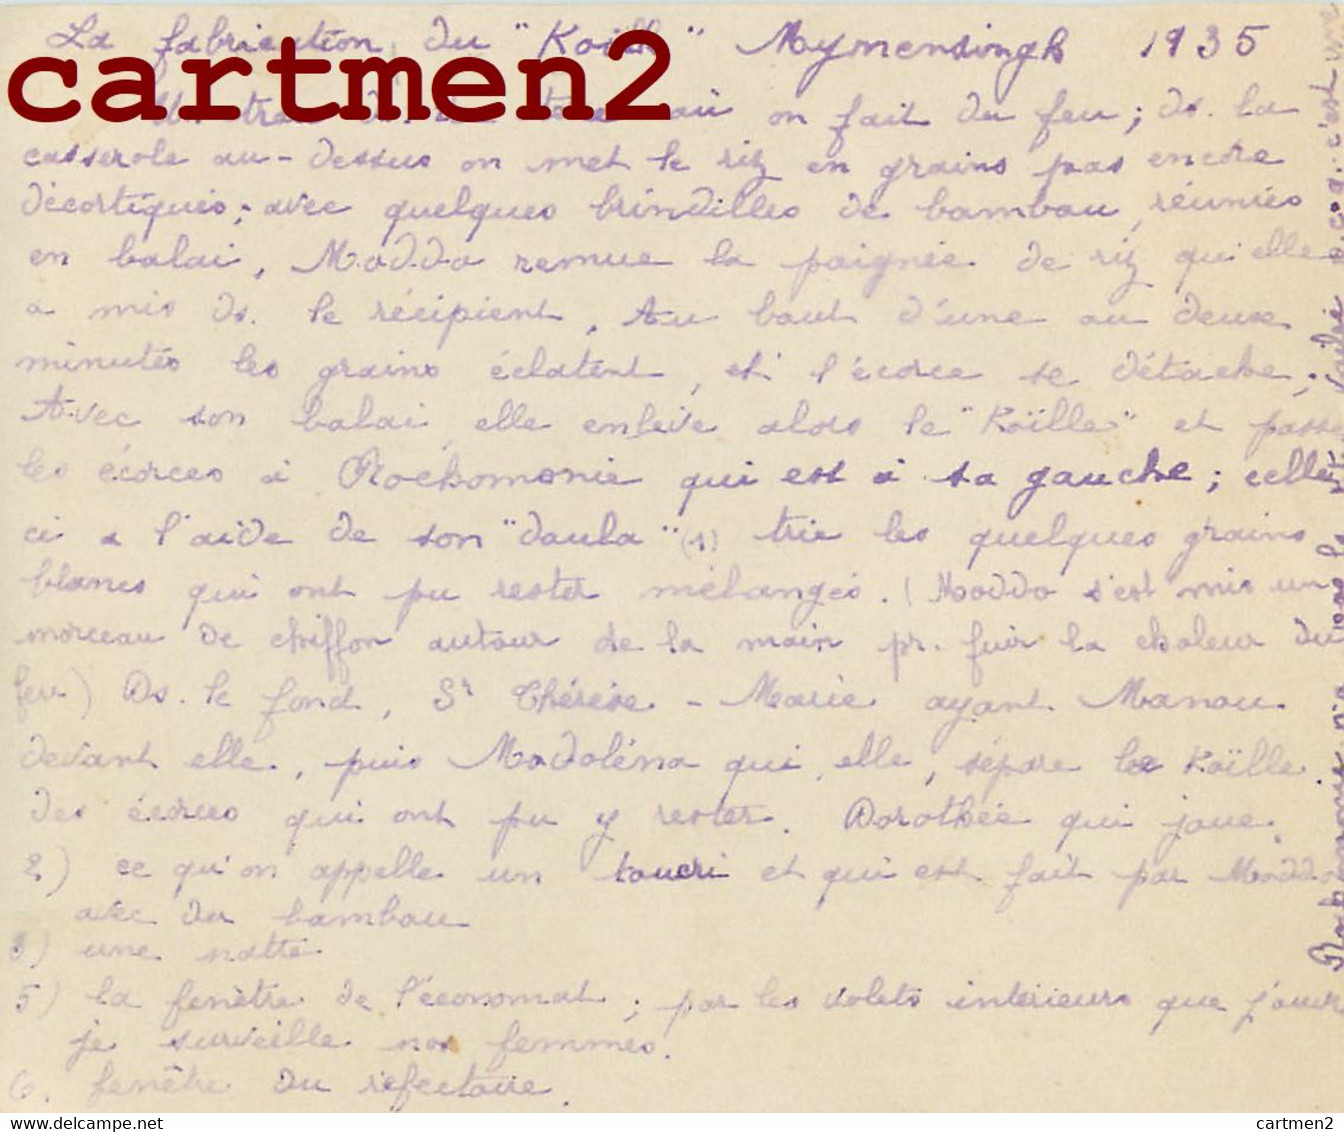 La fabrication du "Koïlle" Mymensingh 1935
cartmen2
on fait du feu ; ds. la
casserole au-dessus on met le riz en grains pas encore
décortiqués ; avec quelques brindilles de bambou, réunies
en balai, Moddo remue la poignée de riz qu'elle
a mis ds. le récipient. Au bout d'une ou deux
minutes les grains éclatent, et l'écorce se détache ;
Avec son balai, elle enlève alors le "Koïlle" et passe
les écorces à Rockomonie qui est à sa gauche ; celle
ci à l'aide de son "daula" (1) trie les quelques grains
blancs qui ont pu rester mélangés. (Moddo s'est mis un
morceau de chiffon autour de la main pr. fuir la chaleur du
feu) Ds. le fond, Sr Thérèse-Marie ayant Manou
devant elle, puis Modoléna qui, elle, sépare le Koïlle
des écorces qui ont pu y rester. Dorothée qui joue.
2) ce qu'on appelle un toucri et qui est fait par Moddo
avec du bambou
3) une natte
5) la fenêtre de l'économat ; par les volets intérieurs que j'ouvre
je surveille nos femmes.
6. fenêtre du réfectoire.
cartmen2
cartmen2